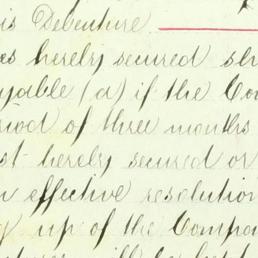 is Debenture
es hereby secured sh
ayable (a) if the Co
riod of three months
st hereby secured or
n effective resolution
g up of the Compa